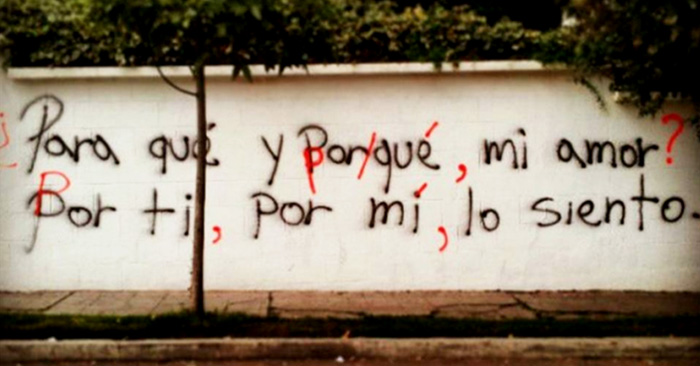 ¿Para qué y por/qué, mi amor?
Por ti, por mí, lo siento.